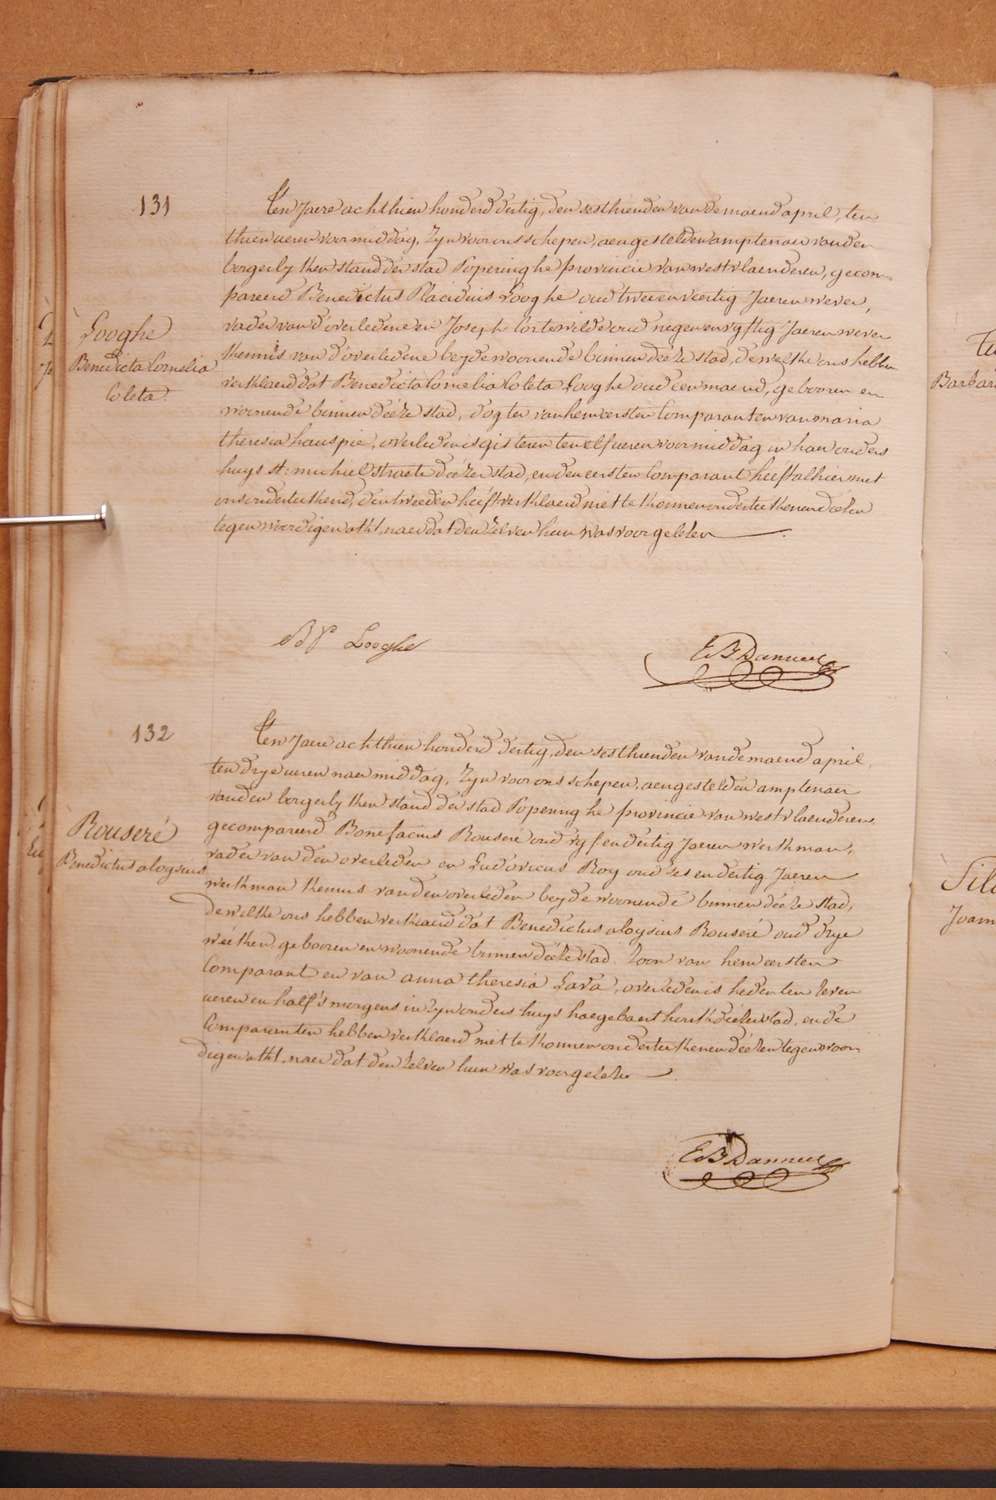 131
Looghe
Benedicta Cornelia
Coleta
Ten Jaere achthien honderd dertig, den sesthienden van de maend april, ten
thien ueren voormiddag, zyn voor ons schepen, aengestelden amptenaer van den
borgerlyken stand der stad Poperinghe provincie van westvlaenderen, gecom-
pareerd Benedictus Placidus Looghe oud tweeenveertig Jaeren wever,
vader van d'overledene en Joseph Cortewilde oud negen en vyftig Jaeren wever
kennis van d'overledene beyde woonende binnen deéze stad, dewelke ons hebben
verklaerd dat Benedicta Cornelia Coleta Looghe oud een maend, gebooren en
woonende binnen deéze stad, dogter van hem eersten Comparant en van maria
theresia hauspie, overleden is gisteren ten elf ueren voormiddag in haer ouders
huys St: michiel straete deézer stad, en den eersten Comparant heeft alhier met
ons onderteekend, den tweeden heeft verklaerd niet te konnen onderteekenen deézen
tegenwoordigen akt, naer dat den zelven hun was voorgelezen
Bs Pe Looghe
E B Danneel
132
Rouseré
Benedictus aloysius
Ten Jaere achthien honderd dertig, den sesthienden van de maend april,
ten drye ueren naermiddag, zyn voor ons schepen, aengestelden amptenaer
van den borgerlyken stand der stad Poperinghe provincie van westvlaenderen,
gecompareerd Bonefacius Rouseré oud vyfendertig Jaeren werkman,
vader van den overleden en Ludovicus Roy oud zes en dertig Jaeren
werkman kennis van den overleden beyde woonende binnen deéze stad,
dewelke ons hebben verklaerd dat Benedictus aloysius Rouseré oud drye
wéeken, gebooren en woonende binnen deéze stad, Zoon van hem eersten
Comparant en van anna theresia Lava, overleden is heden ten zeven
ueren en half 's morgens in zyn ouders huys haegebaert hoek deézer stad, en de
Comparanten hebben verklaerd niet te konnen onderteekenen deézen tegenwoor-
digen akt, naer dat den zelven hun was voorgelezen
E B Danneel
Barbar
Joann